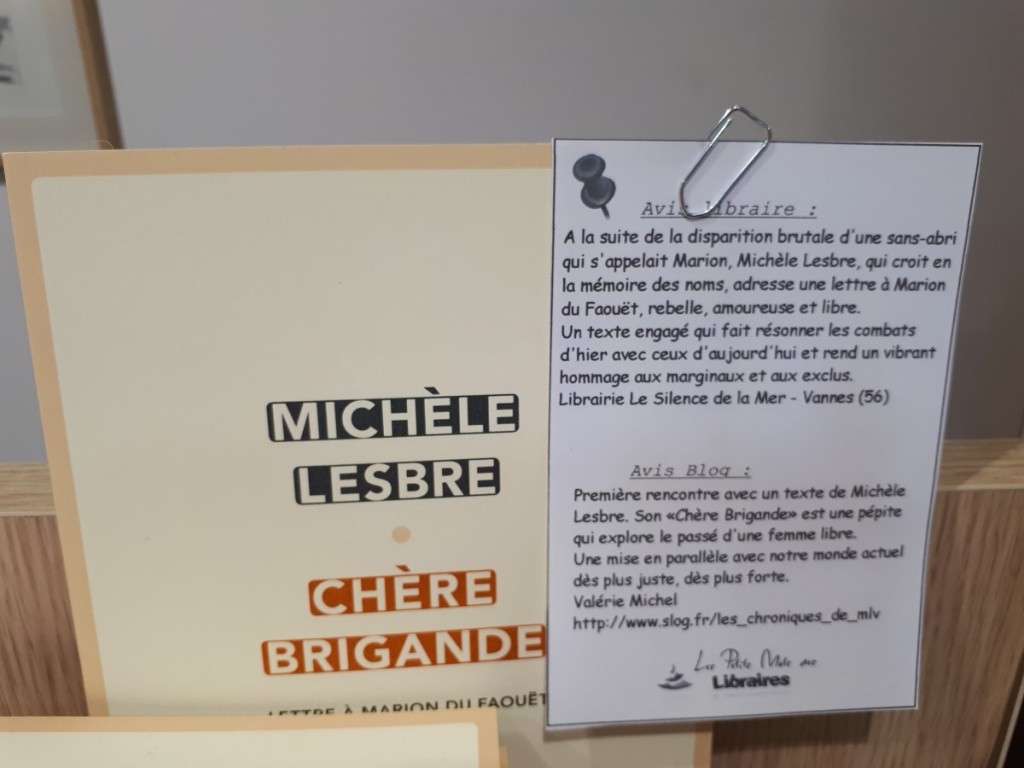 MICHÈLE
LESBRE
CHÈRE
BRIGANDE
LETTRE À MARION DU FAOUËT
Avis libraire :
A la suite de la disparition brutale d'une sans-abri
qui s'appelait Marion, Michèle Lesbre, qui croit en
la mémoire des noms, adresse une lettre à Marion
du Faouët, rebelle, amoureuse et libre.
Un texte engagé qui fait résonner les combats
d'hier avec ceux d'aujourd'hui et rend un vibrant
hommage aux marginaux et aux exclus.
Librairie Le Silence de la Mer - Vannes (56)
Avis Blog :
Première rencontre avec un texte de Michèle
Lesbre. Son «Chère Brigande» est une pépite
qui explore le passé d'une femme libre.
Une mise en parallèle avec notre monde actuel
dès plus juste, dès plus forte.
Valérie Michel
http://www.slog.fr/les_chroniques_de_mlv
Les Petits Mots des
Libraires